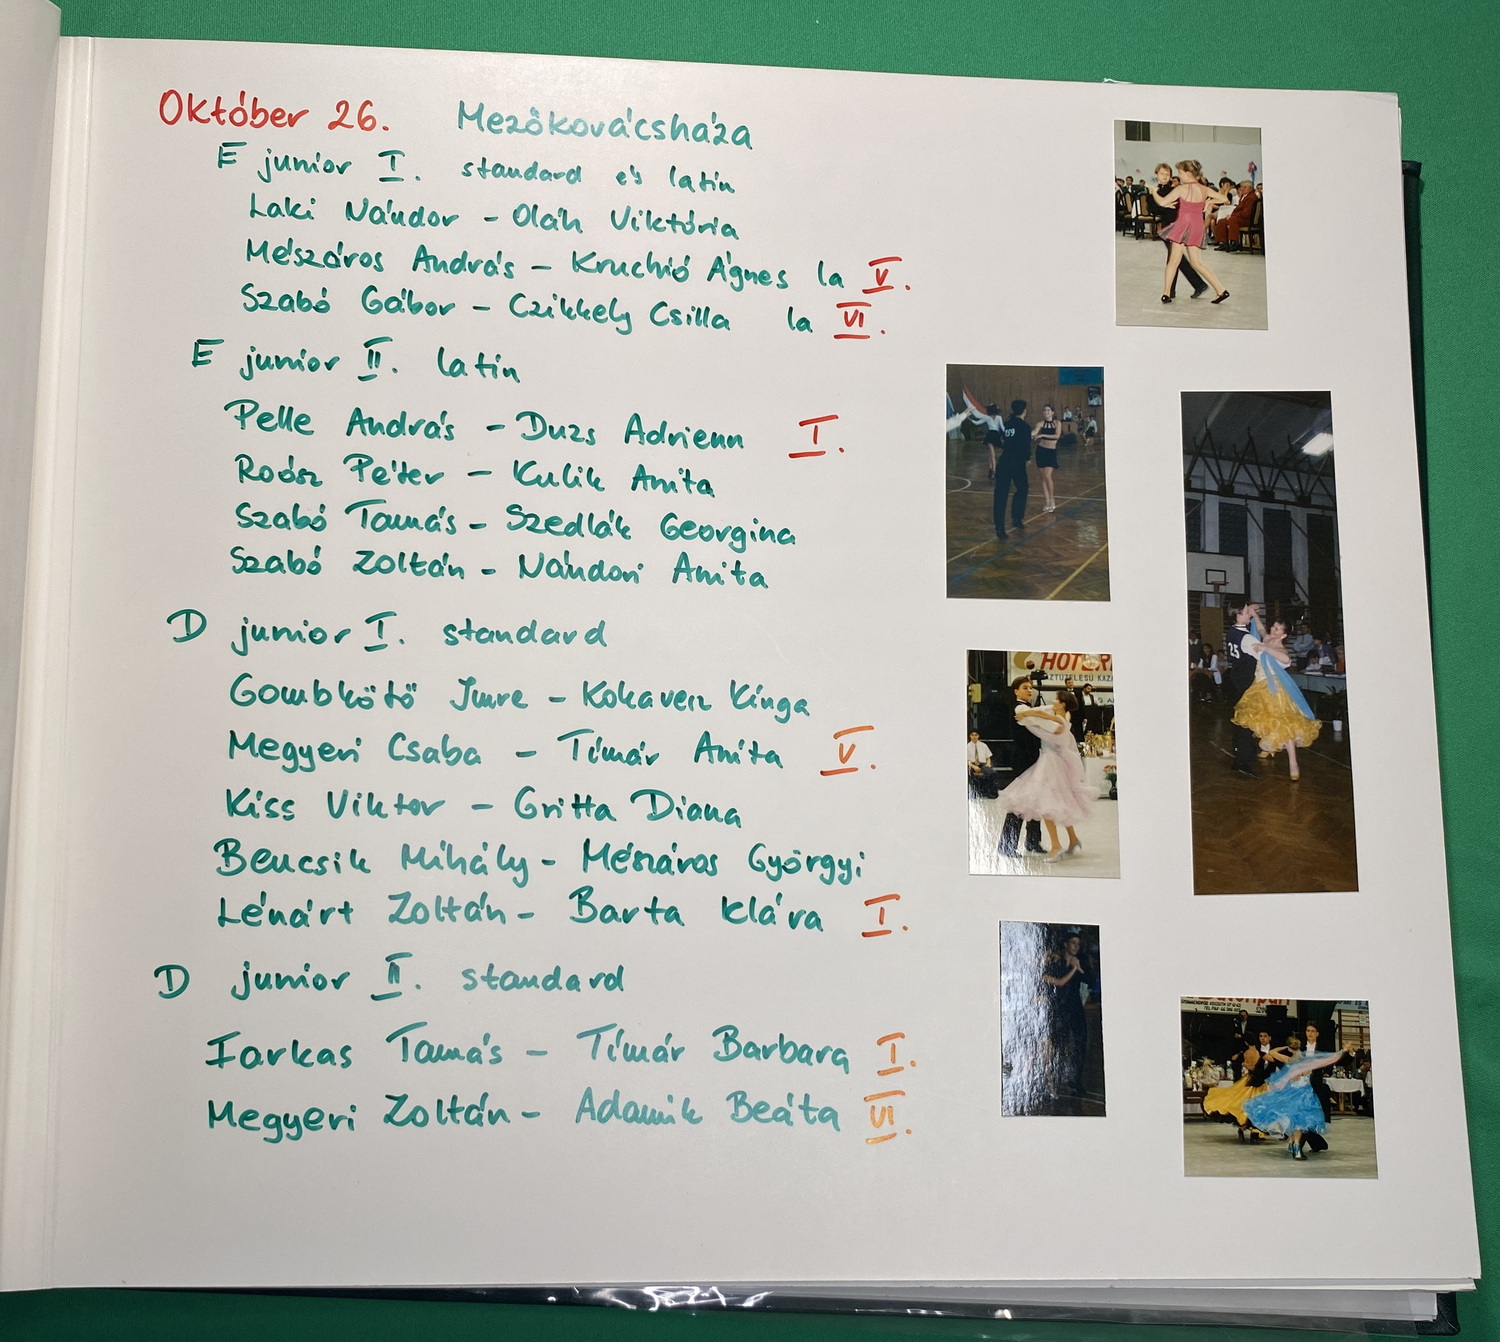 Október 26. Mezőkovácsháza
E junior I. standard és latin
Laki Nándor - Oláh Viktória
Mészáros András - Kruchió Ágnes la V.
Szabó Gábor - Czikkely Csilla la VI.
E junior II. latin
Pelle András - Duzs Adrienn I.
Roósz Péter - Kulik Anita
Szabó Tamás - Szedlák Georgina
Szabó Zoltán - Nándori Anita
D junior I. standard
Gombkötö Imre - Kokavecz Kinga
Megyeri Csaba - Tímár Anita V.
Kiss Viktor - Gritta Diana
Bencsik Mihály - Mészáros Györgyi
Lénárt Zoltán - Barta Klára I.
D junior II. standard
Farkas Tamás - Tímár Barbara I.
Megyeri Zoltán - Adamik Beáta VI.
25